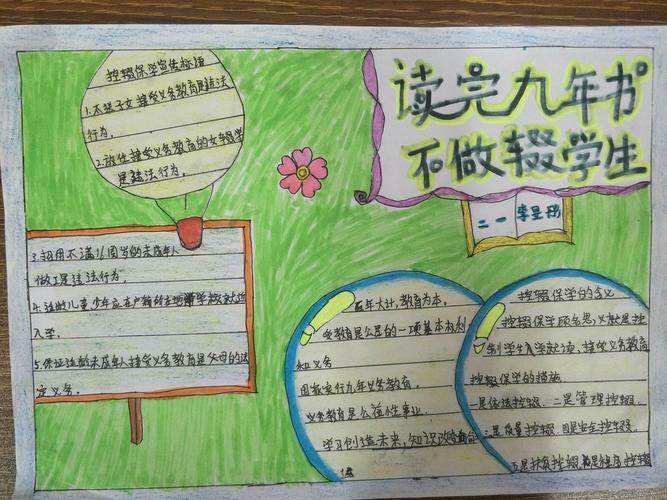 读完九年书
不做辍学生
二一 李呈彤
控辍保学宣传标语
1.不送子女接受义务教育是违法
行为。
2.放任接受义务教育的女辍学
是违法行为。
3.招用不满16周岁的未成年人
做工是违法行为。
4.适龄儿童、少年应在户籍所在地学校就近
入学。
5.保证适龄未成年人接受义务教育是父母的法
定义务。
百年大计,教育为本。
受教育是公民的一项基本权利
和义务
国家实行九年义务教育。
义务教育是公益性事业。
学习创造未来,知识改变命
控辍保学的含义
控辍保学顾名思义就是控
制学生入学就读,接受义务教育
控辍保学的措施
一是依法控辍、二是管理控辍、
三是质量控辍、四是安全控辍、
五是扶贫控辍、